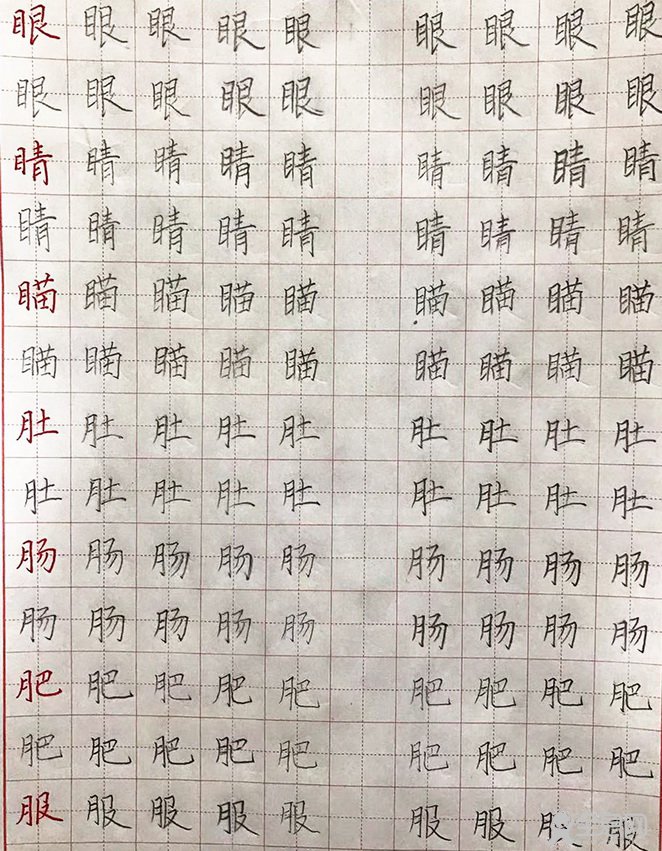 眼眼眼眼眼眼眼眼眼
眼眼眼眼眼眼眼眼眼
睛睛睛睛睛睛睛睛睛
睛睛睛睛睛睛睛睛睛
瞄瞄瞄瞄瞄瞄瞄瞄瞄
瞄瞄瞄瞄瞄瞄瞄瞄瞄
肚肚肚肚肚肚肚肚肚
肚肚肚肚肚肚肚肚肚
肠肠肠肠肠肠肠肠肠
肠肠肠肠肠肠肠肠肠
肥肥肥肥肥肥肥肥肥
肥肥肥肥肥肥肥肥肥
服服服服服服服服服